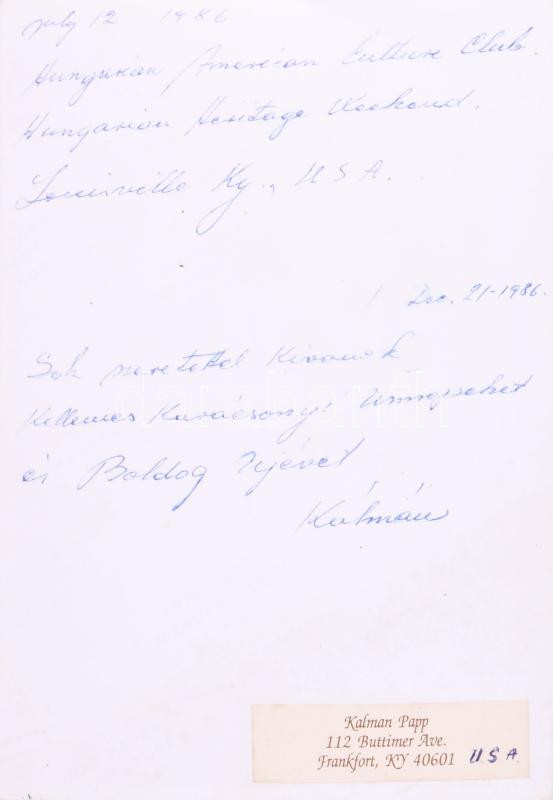 july 12 1986
Hungarian American Culture Club.
Hungarian Heritage Weekend.
Louisville Ky., U S A.
Dec. 21-1986.
Sok szeretettel Kivanok
Kellemes Karácsonyi Ünnepeket
és Boldog Ujévet
Kálmán
darabanth
Kalman Papp
112 Buttimer Ave.
Frankfort, KY 40601 U S A